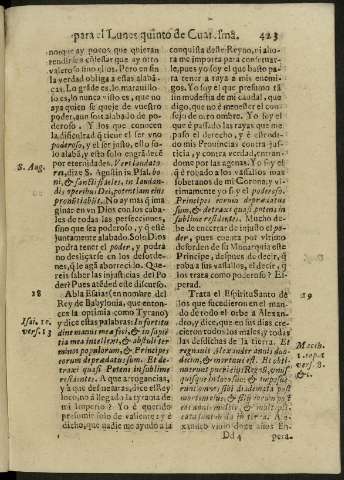 para el Lunes quinto de Cuar. smā. 423
porque ay pocos que quieran
rendirse a confessar que ay otro
valeroso sino ellos. Pero en fin
la verdad obliga a estas alabā-
cas. Lo grāde es, lo maravillo-
so es, lo nunca visto es, que no
aya quien se queje de vuestro
poder, aun sois alabado de po-
deroso. Y los que conocen
la dificultad q̄ tiene el ser
poderoso, y el ser justo, esto so-
lo alabā, y esto solo engrādecē
por eternidades.
S. Aug.
dize S. Agustin in Psal.
ni, & sanctificates, in laudan-
dis operibus Dei, potentiam eius
No ay mas q̄ ima
ginar en vn Dios con los caba-
les de todas las perfecciones,
sino que sea poderoso, y q̄ estē
juntamente alabado. Solo Dios
podra tener el poder, y podra
no deslizarse en los desorde-
nes, q̄ le agā aborrecido. Que-
reis saber las injusticias del Po
der? Pues atēded este discurso.
18
Abla Esaias (en nombre del
Rey de Babylonia, que enton-
ces la optima como Tyrano)
y dize estas palabras: In fortitu
Isai. 10.
vers. 13
dine manus meæ feci, & in sapiē
tia mea intellexi, & abstuli ter
minos populorum, & Principes
eorum deprædatus sum. Et de-
traxi quasi Potens in sublime
residentes. A que arrogancias,
y a que desafueros, dize el Re-
no à llegado la tyranìa de
mi Imperio? Yo è querido
presumir solo de valiente; y è
dicho, que nadie me ayudo a la
conquista deste Reyno, ni aho-
ra me importa para conservar-
le, pues yo soy el que basto pa
ra tener a raya a mis enemi-
gos. Yo soy el que presumo tā
sin modestia de mi caudal, que
digo, que no è menester el con-
sejo de otro ombre. Yo soy el
que è passado las rayas que me
puso el derecho, y è estrañado
de mis Provincias contra jus-
ticia y contra verdad, entran-
dome por las agenas. Yo soy el
q̄ è robado a los vassallos mas
sobstantes de mi Corona; y vl
timamente yo soy el poderoso.
Principes eorum deprædatus
sum, & detraxi quasi potens in
sublime residentes. Mucho de-
be de encerrar de injusto el po-
der, pues que cuenta por visto
so desorden de su Monarquia este
Principe, despues de decir, q̄
roba a los vassallos, el decir, q̄
los trata como poderoso? Es-
perad.
29
Trata el Espiritu Santo de
los que sucedieron en el man-
do de todo el orbe a Alexan-
dro, y dice, que en sus dias cre-
cieron todos los males, y todas
las desdichas de la tierra. Et
Machb.
1. cap. 1
vers. 8.
& 1.
regnavit Alexander annis duo-
decim, & mortuus est. Et obti-
nuerunt pueri eius Regnū, vnus
quisque in loco suo; & imposue
runt omnes sibi diademata post
mortem eius, & filij eorum post
eos annis multis, & multipli
cata sunt mala in terra. Ale-
xandro vivio doze años. En
Dd 4 pera.